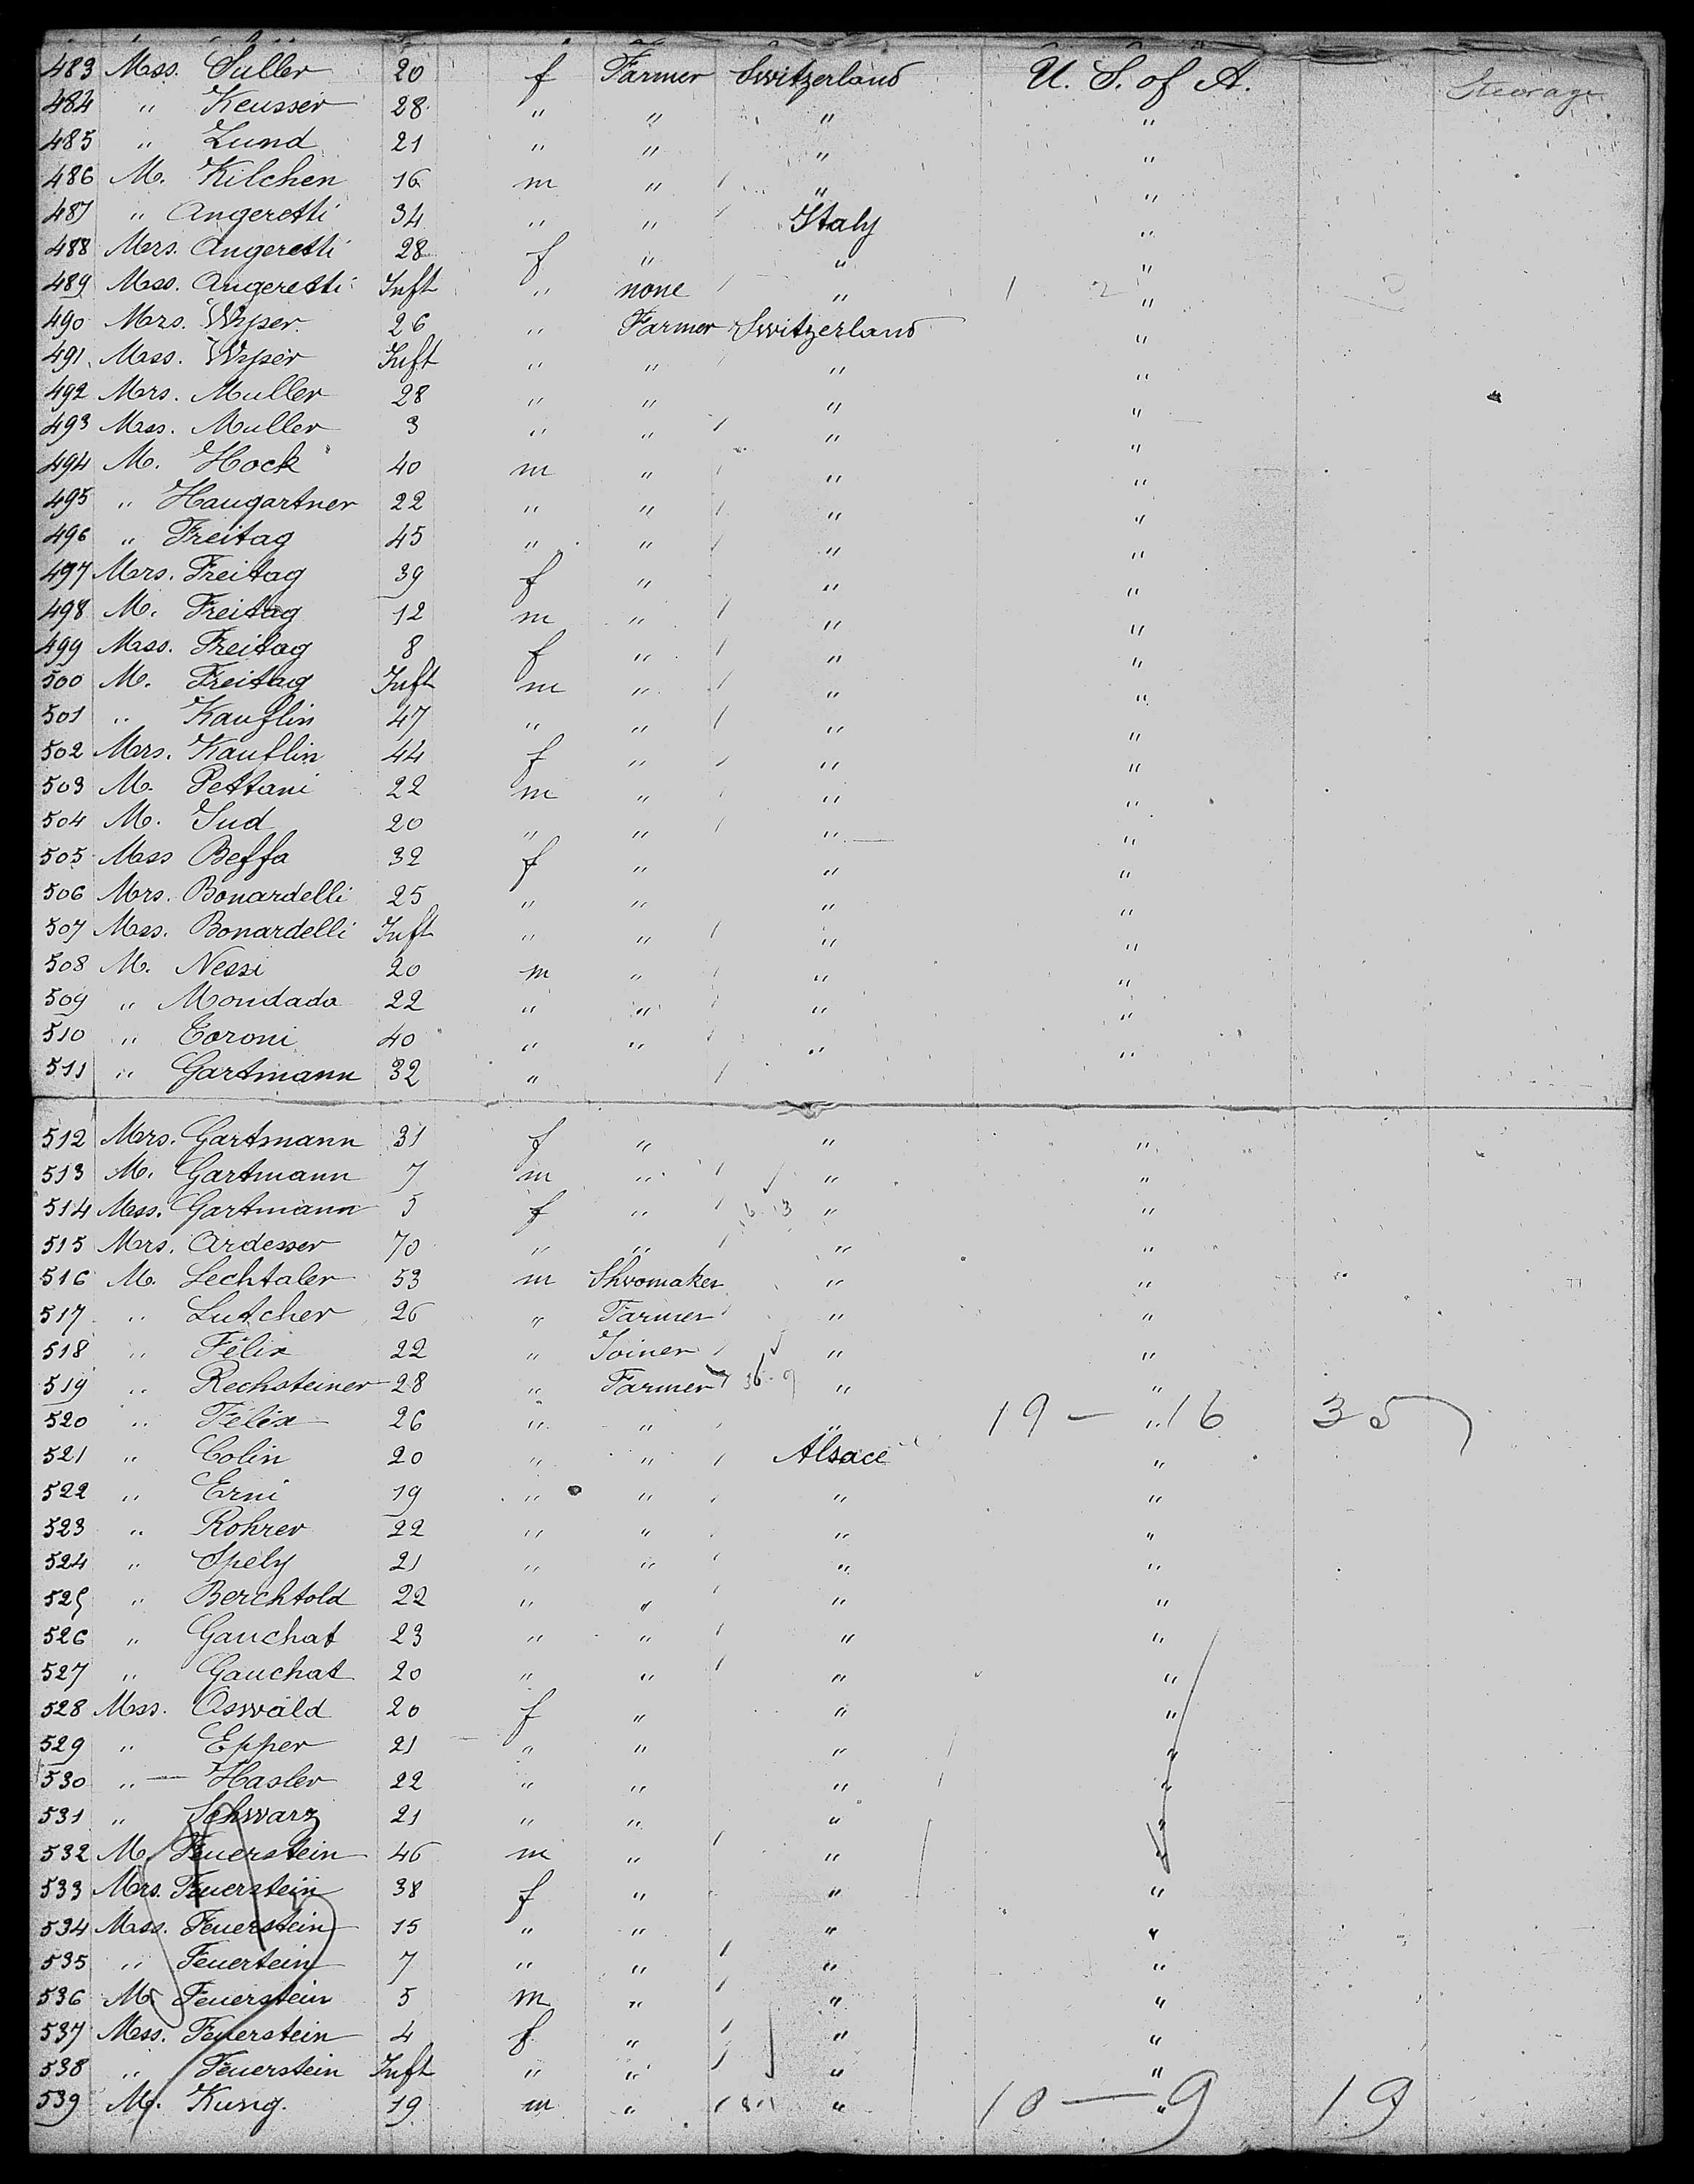 483 Mss. Suller 20 f Farmer Switzerland U. S. of A. Steorage
484 " Keusser 28 " " " "
485 " Lund 21 " " " "
486 M. Kilchen 16 m " " "
487 " Angeretti 34 " " Italy "
488 Mrs. Angeretti 28 f " " "
489 Mss. Angeretti Inft " none " "
490 Mrs. Wyser. 26 " Farmer Switzerland "
491 Mss. Wyser Inft " " " "
492 Mrs. Muller 28 " " " "
493 Mss. Muller 3 " " " "
494 M. Hock 40 m " " "
495 " Haugartner 22 " " " "
496 " Freitag 45 " " " "
497 Mrs. Freitag 39 f " " "
498 M. Freitag 12 m " " "
499 Mss. Freitag 8 f " " "
500 M. Freitag Inft m " " "
501 " Kauflin 47 " " " "
502 Mrs. Kauflin 44 f " " "
503 M. Pettani 22 m " " "
504 M. Jud 20 " " " "
505 Mss Beffa 32 f " " "
506 Mrs. Bonardelli 25 " " " "
507 Mss. Bonardelli Inft " " " "
508 M. Nessi 20 m " " "
509 " Mondada 22 " " " "
510 " Coroni 40 " " " "
511 " Gartmann 32 "
512 Mrs. Gartmann 31 f " " "
513 M. Gartmann 7 m " " "
514 Mss. Gartmann 5 f " " "
515 Mrs. Ardesser 70 " " " "
516 M. Lechtaler 53 m Shvomaker " "
517 " Lutcher 26 " Farmer " "
518 " Felix 22 " Joiner " "
519 " Rechsteiner 28 " Farmer " "
520 " Felix 26 " " " " 19 — 16 35
521 " Colin 20 " " Alsace "
522 " Erni 19 " " " "
523 " Rohrer 22 " " " "
524 " Spely 21 " " " "
525 " Berchtold 22 " " " "
526 " Gauchat 23 " " " "
527 " Gauchat 20 " " " "
528 Mss. Oswald 20 f " " "
529 " Epper 21 " " " "
530 " — Hasler 22 " " " "
531 " Schwarz 21 " " " "
532 M. Feuerstein 46 m " " "
533 Mrs. Feuerstein 38 f " " "
534 Mss. Feuerstein 15 " " " "
535 " Feuertein 7 " " " "
536 M. Feuerstein 5 m " " "
537 Mss. Feuerstein 4 f " " "
538 " Feuerstein Inft " " " "
539 M. Kung. 19 m " " " 10 — 9 19